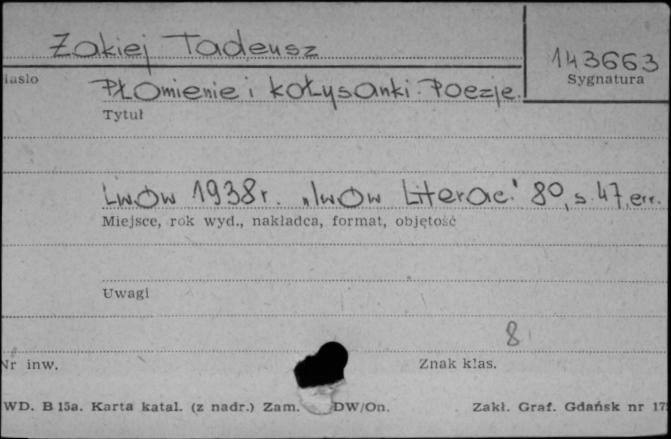 Żakiej Tadeusz
143663
Sygnatura
iasło
Płomienie i kołysanki. Poezje.
Tytuł
Lwów 1938 r. "Lwów Literac." 8°, s. 47, err.
Miejsce, rok wyd., nakładca, format, objętość
Uwagi
8
Nr inw.
Znak klas.
WD. B 15a. Karta katal. (z nadr.) Zam. DW/On.
Zakł. Graf. Gdańsk nr 17